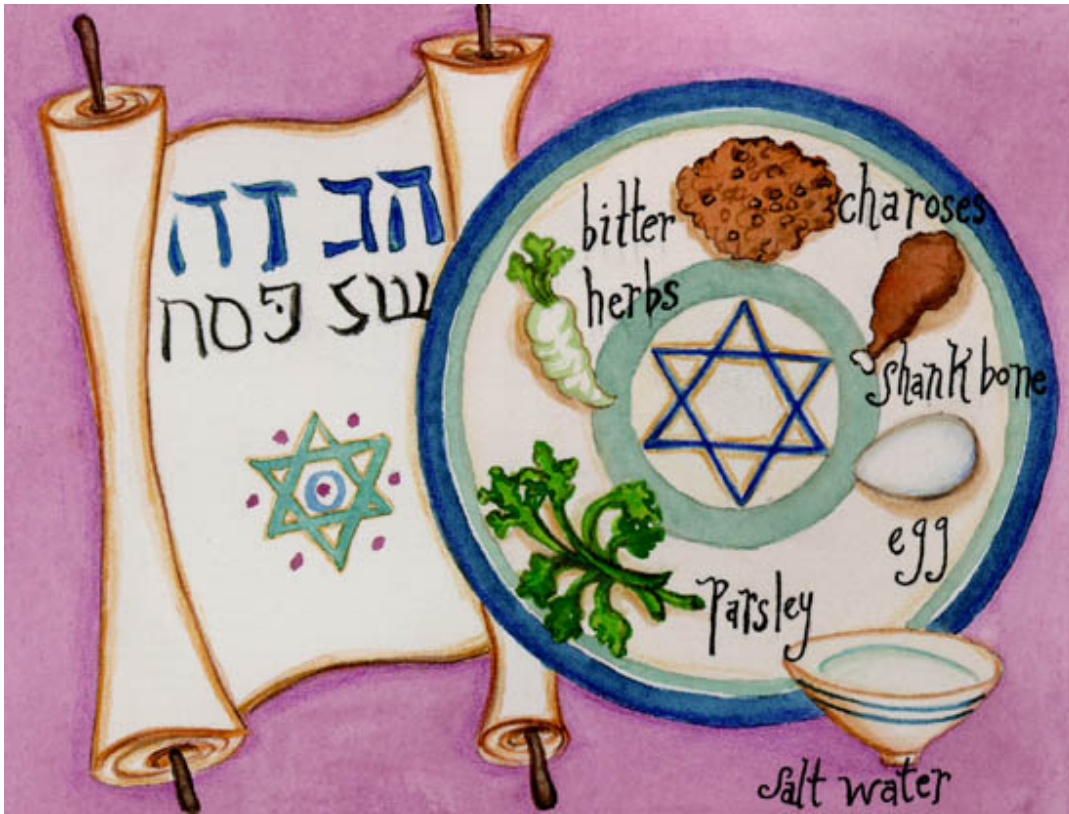 הגדה
של פּסח
bitter
herbs
charoses
shank bone
egg
Parsley
salt water